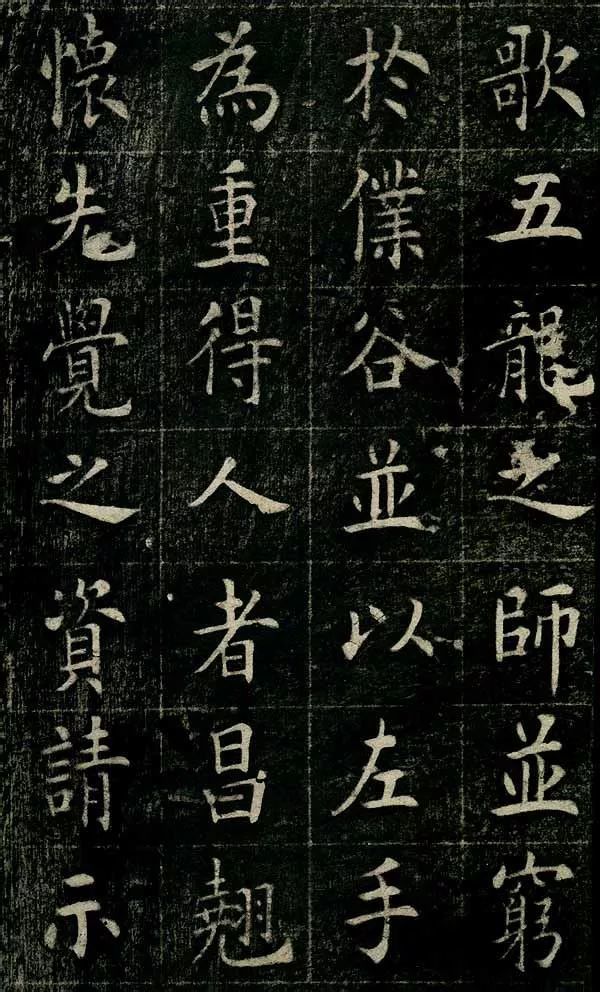 歌五龍之師並窮
於僕谷並以左手
為重得人者昌翹
懷先覺之資請示